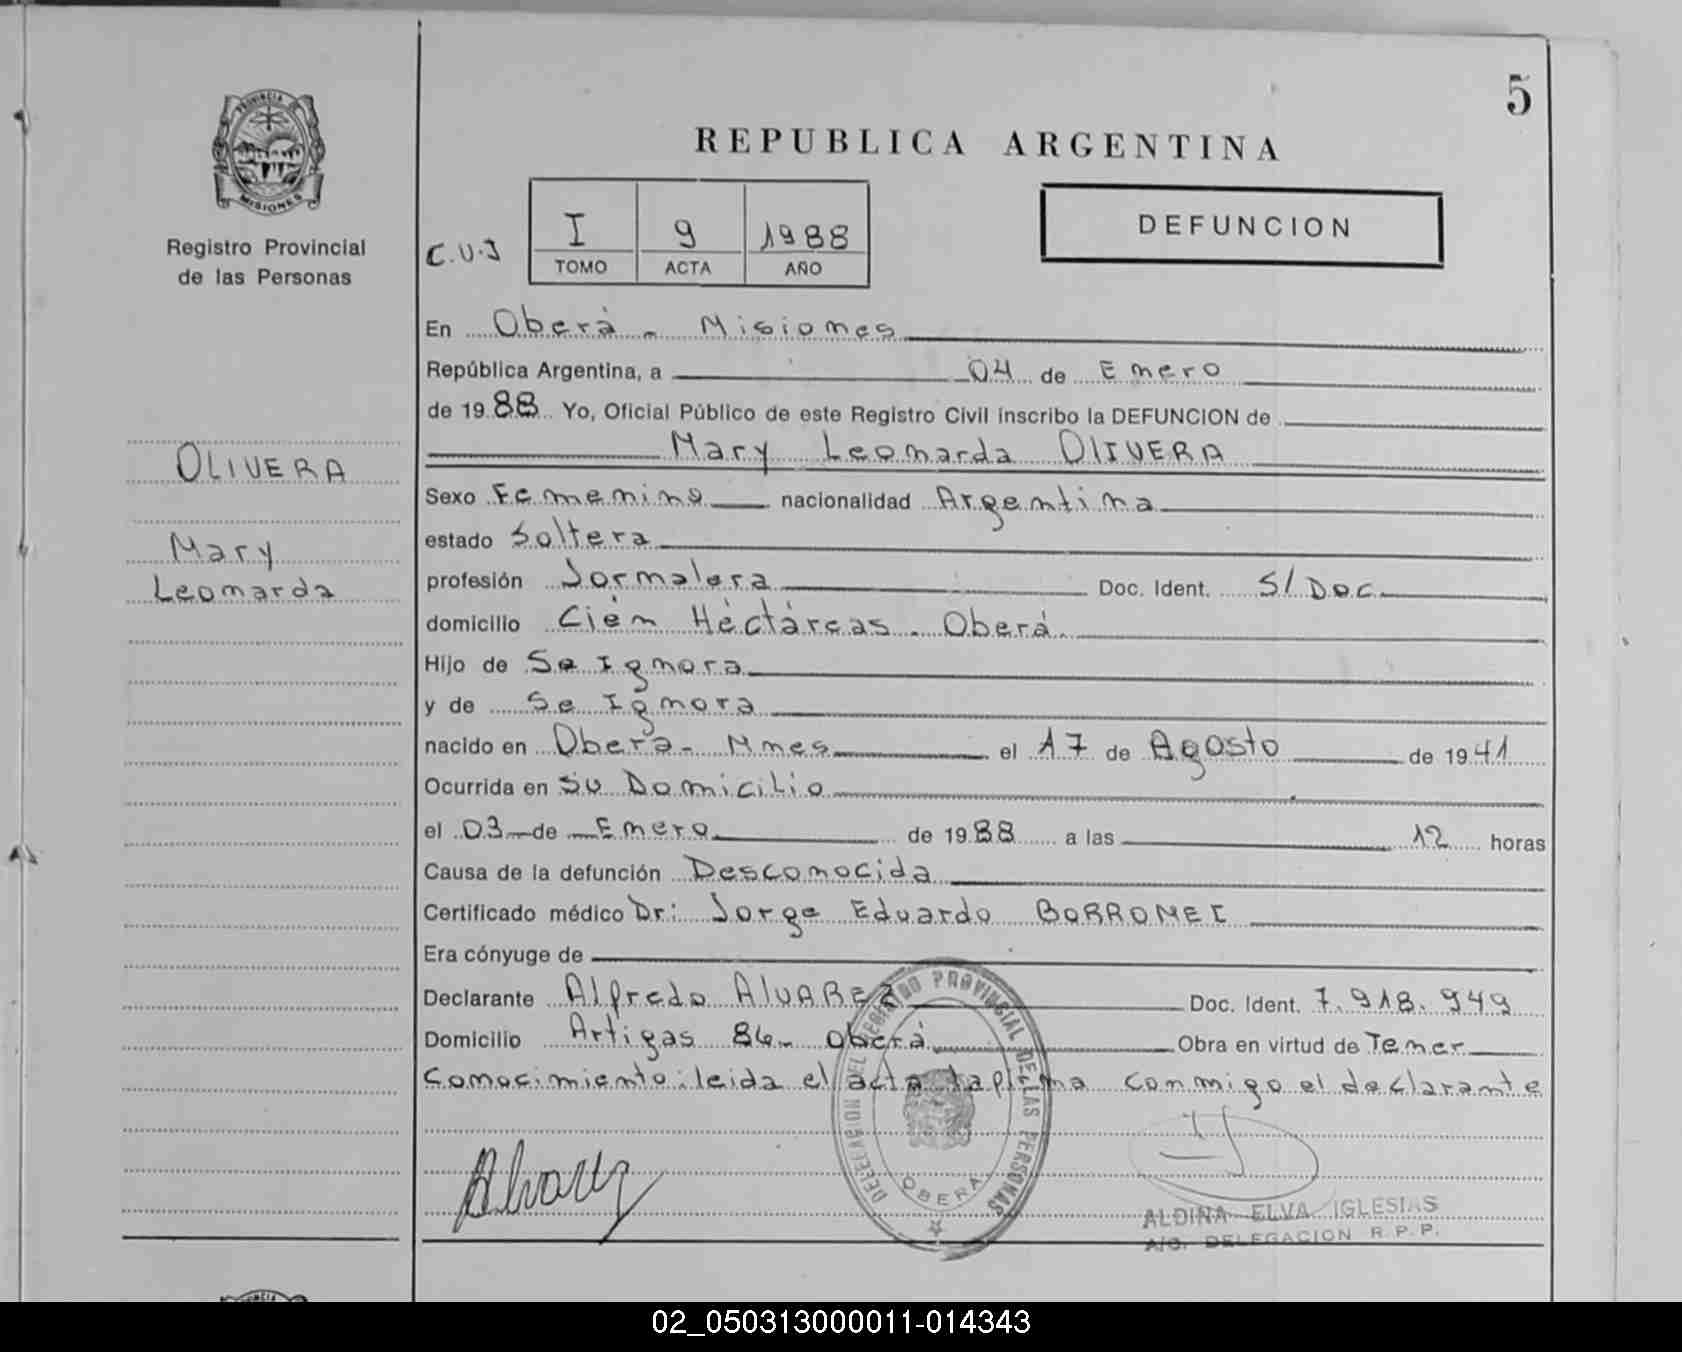 5
PROVINCIA DE
MISIONES
Registro Provincial
de las Personas
REPUBLICA ARGENTINA
C.U.I
I 9 1988
TOMO ACTA AÑO
DEFUNCION
En Oberá - Misiones
República Argentina, a 04 de Enero
de 1988 Yo, Oficial Público de este Registro Civil inscribo la DEFUNCION de
Mary Leonarda OLIVERA
OLIVERA
Mary
Leonarda
Sexo Femenino nacionalidad Argentina
estado Soltera
profesión Jornalera Doc. Ident. S/Doc
domicilio Cién Héctáreas - Oberá.
Hijo de Se Ignora
y de Se Ignora
nacido en Oberá - Mnes el 17 de Agosto de 1941
Ocurrida en Su Domicilio
el 03 de Enero de 1988 a las 12 horas
Causa de la defunción Desconocida
Certificado médico Dr: Jorge Eduardo BORROMEI
Era cónyuge de
Declarante Alfredo ALVAREZ Doc. Ident. 7.918.949
Domicilio Artigas 86 - Oberá Obra en virtud de Tener
conocimiento: leida el acta la firma conmigo el declarante
Alvarez
DELEGACION DEL REGISTRO PROVINCIAL DE LAS PERSONAS
OBERA
ALDINA ELVA IGLESIAS
A/C. DELEGACION R.P.P.
02_050313000011-014343